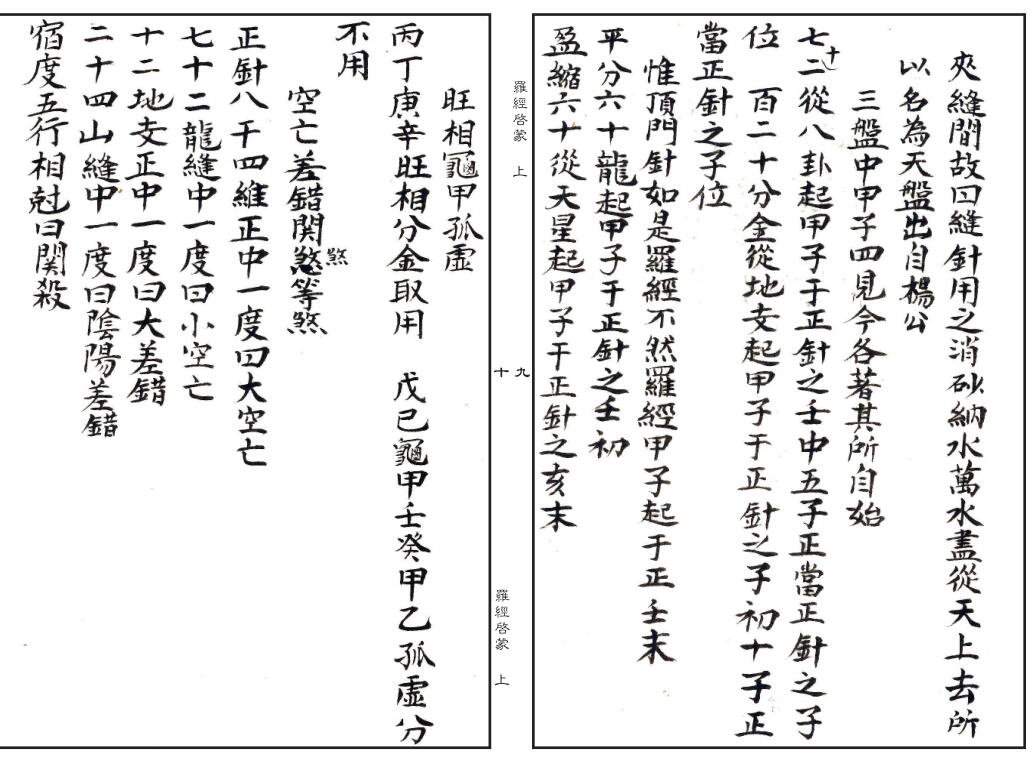 夾縫間故曰縫針用之消砂納水萬水盡從天上去所
以名為天盤出自楊公
三盤中甲子四見今各著其所自始
七十二從八卦起甲子于正針之壬中五子正當正針之子
位　百二十分金從地支起甲子于正針之子初十子正
當正針之子位
惟頂門針如是羅經不然羅經甲子起于正壬末
平分六十龍起甲子于正針之壬初
盈縮六十從天星起甲子于正針之亥末
羅經啓蒙　上
九
十
羅經啓蒙　上
旺相龜甲孤虛
丙丁庚辛旺相分金取用　戊己龜甲壬癸甲乙孤虛分
不用
空亡差錯関煞等煞
煞
正針八干四維正中一度曰大空亡
七十二龍縫中一度曰小空亡
十二地支正中一度曰大差錯
二十四山縫中一度曰陰陽差錯
宿度五行相尅曰関殺